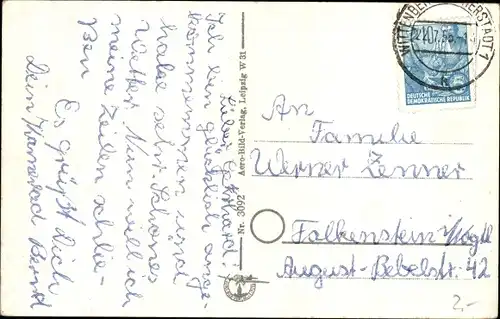 Lieber Eckhard!
Ich bin glücklich ange-
kommen und
habe sehr schönes
Wetter. Nun will ich
meine Zeilen schlie-
ßen
Es grüßt Dich
Dein Kamerad Bernd
Nr. 3092 Aero-Bild-Verlag, Leipzig W 31
WITTENBERG LUTHERSTADT 1
21.07.55
k
DEUTSCHE
DEMOKRATISCHE REPUBLIK
An
Familie
Werner Zenner
Falkenstein i/Vogtl
August-Bebelstr. 42
2,-